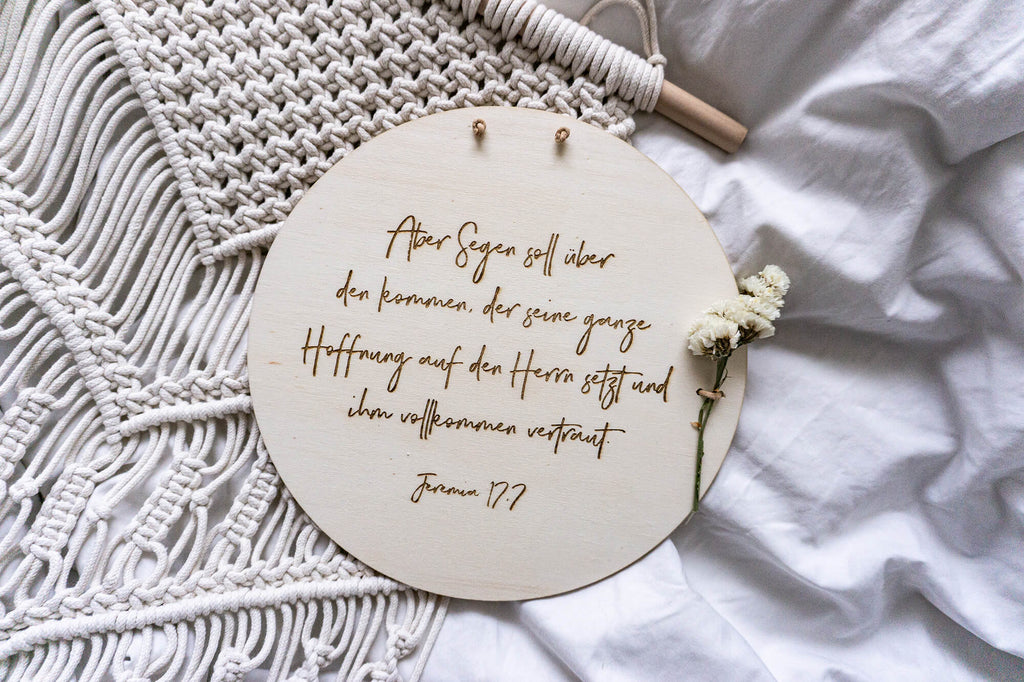 Aber Segen soll über
den kommen, der seine ganze
Hoffnung auf den Herrn setzt und
ihm vollkommen vertraut.
Jeremia 17.7